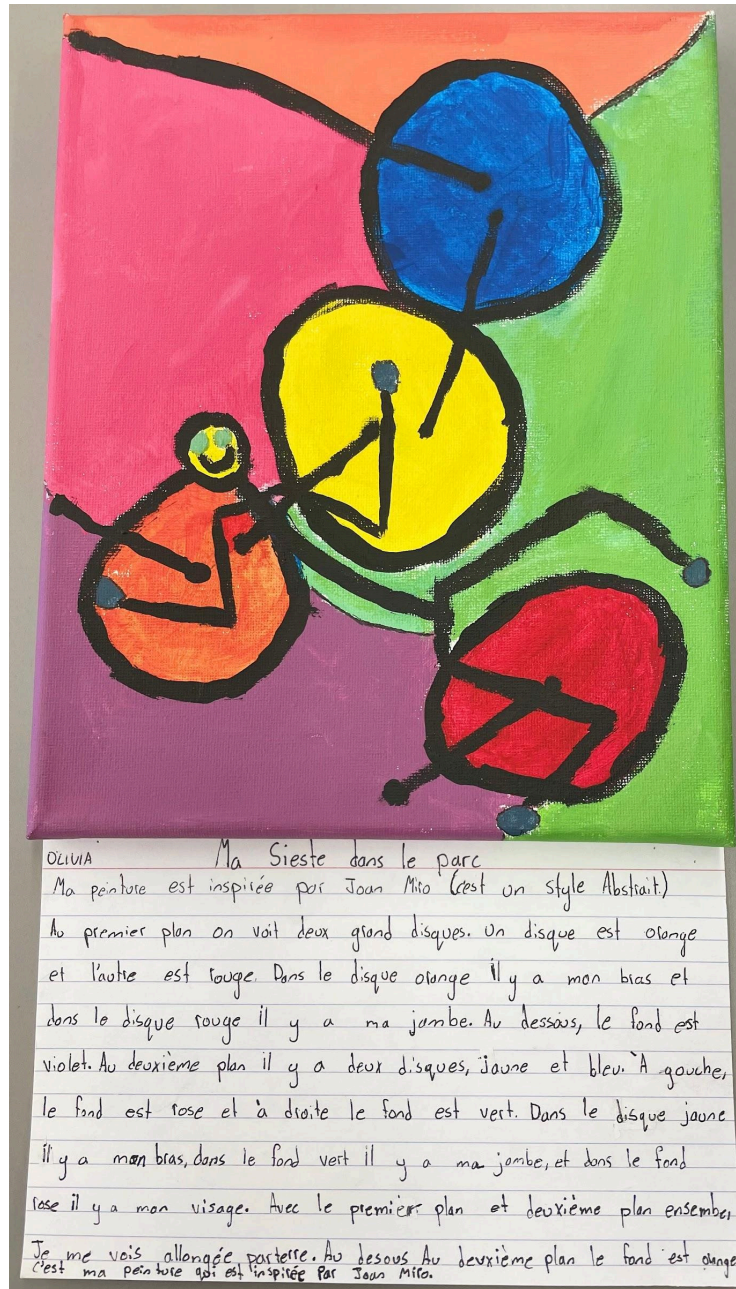 OLIVIA Ma Sieste dans le parc
Ma peinture est inspirée par Joan Miro (c'est un style Abstrait.)
Au premier plan on voit deux grand disques. Un disque est orange
et l'autre est rouge. Dans le disque orange il y a mon bras et
dans le disque rouge il y a ma jambe. Au dessous, le fond est
violet. Au deuxième plan il y a deux disques, jaune et bleu. À gauche,
le fond est rose et à droite le fond est vert. Dans le disque jaune
il y a mon bras, dans le fond vert il y a ma jambe, et dans le fond
rose il y a mon visage. Avec le premier plan et deuxième plan ensember,
Je me vois allongée parterre. Au desous Au deuxième plan le fond est orange
C'est ma peinture qui est inspirée Par Joan Miro.